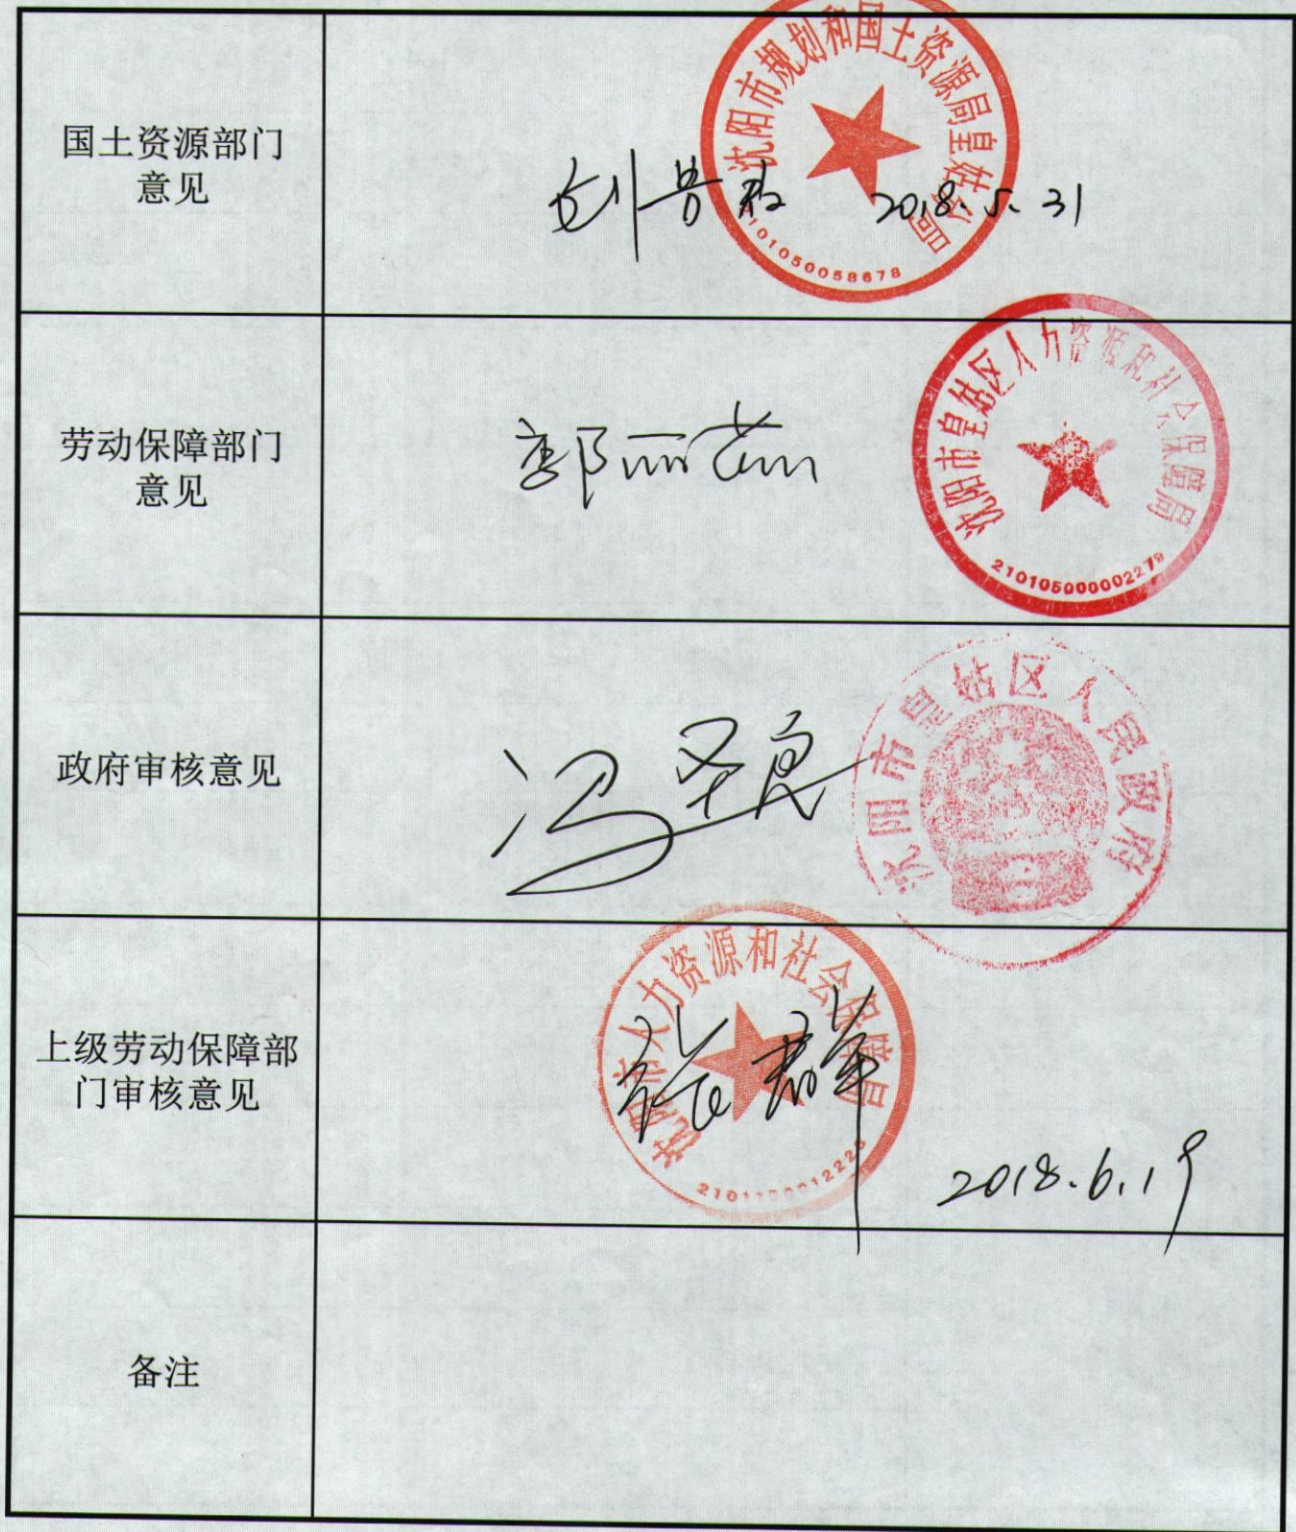 国土资源部门
意见
沈阳市规划和国土资源局皇姑分局
2018.5.31
劳动保障部门
意见
沈阳市皇姑区人力资源和社会保障局
210105000002279
政府审核意见
沈阳市皇姑区人民政府
上级劳动保障部
门审核意见
沈阳市人力资源和社会保障局
2018.6.19
备注